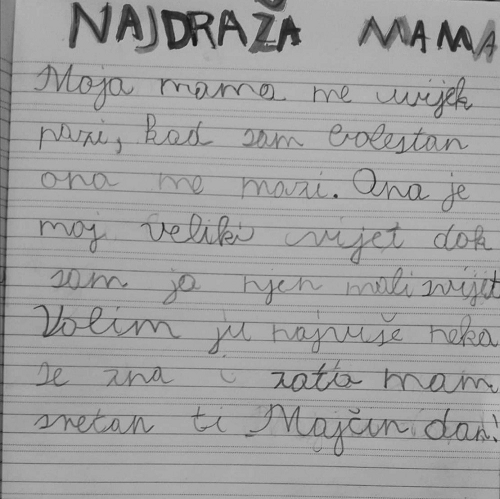 NAJDRAŽA MAMA
Moja mama me uvijek
pazi, kad sam bolestan
ona me mazi. Ona je
moj veliki svijet dok
sam ja njen mali svijet
Volim ju najviše neka
se zna i zato mam
sretan ti Majčin dan!